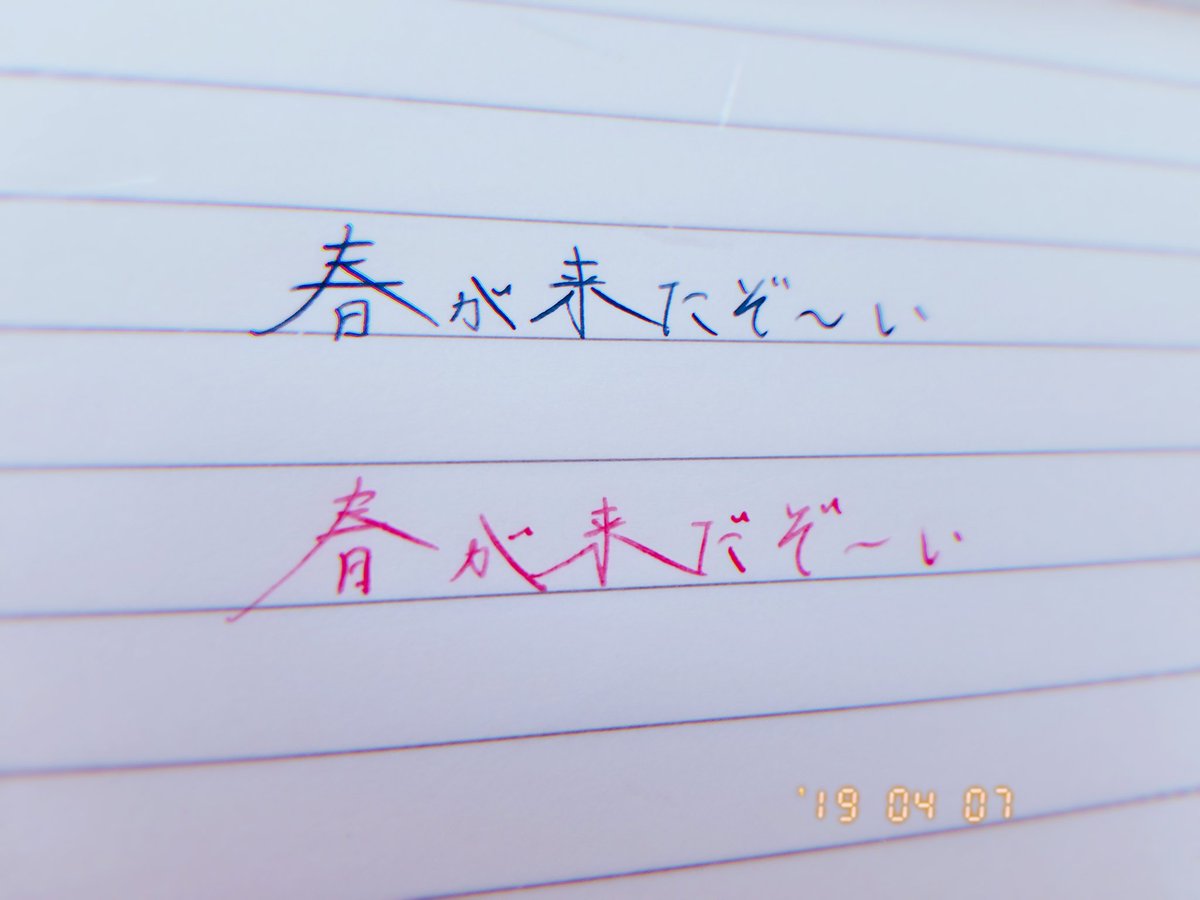 春が来たぞ〜い
春が来だぞ〜い
'19 04 07